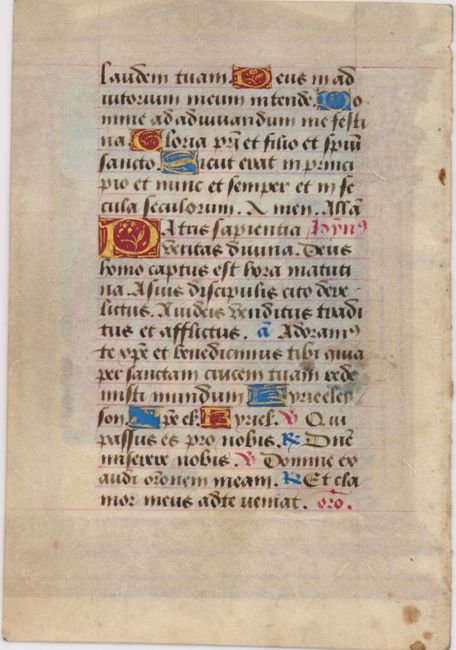 laudem tuam. Deus in ad
iutorium meum intende. Do
mine ad adiuuandum me festi
na. Gloria pri et filio et spiui
sancto. Sicut erat in princi
pio et nunc et semper et in se
cula seculorum. Amen. Alla
Patris sapientia hyn9
veritas diuina. Deus
homo captus est hora matuti
na. A suis discipulis cito dere
lictus. A iudeis venditus tradi
tus et afflictus. a Adoram9
te xpe et benedicimus tibi quia
per sanctam crucem tuam rede
misti mundum Kyrieley
son. Xpe el. Kyriel. V Qui
passus es pro nobis. R Dne
miserere nobis. V Domine ex
audi oronem meam. R Et cla
mor meus ad te veniat. oro.